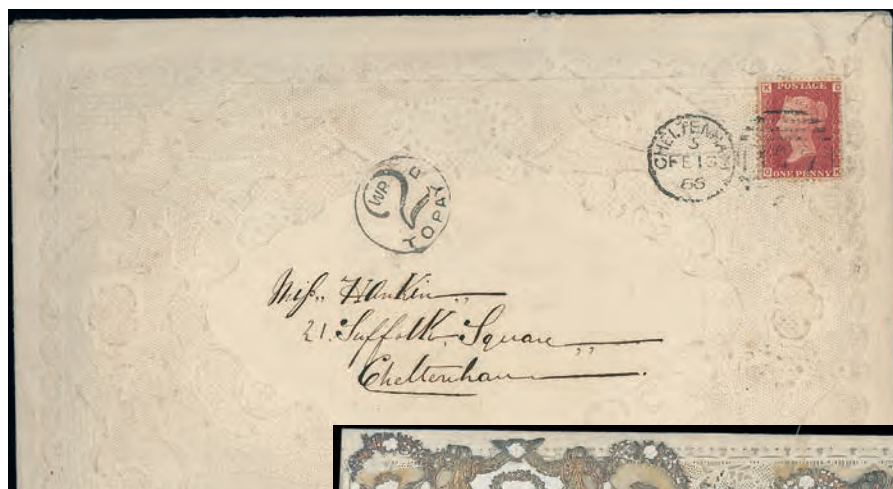 K POSTAGE O
ONE PENNY
CHELTENHAM
5
FE 13
66
2 TO PAY
Miss,, Hankin,,
21. Suffolk Square,,
Cheltenham.